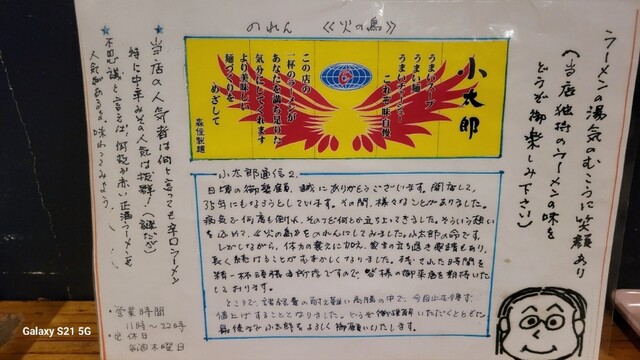 のれん 《火の鳥》
ラーメンの湯気のむこうに笑顔あり
(当店独特のラーメンの味を
どうぞ御楽しみ下さい)
小太郎
うまいスープ
うまい麺
うまいチャーシュー
これぞ味自慢
この店の
一杯のラーメンが
あなたを満ち足りた
気分にしてくれます
より美味しい
麺づくりを
めざして
森住製麺
★当店の人気者は何と言っても辛口ラーメン
特に中辛みその人気は抜群!(謎だ)
★不思議と言えば、何故か赤い正油ラーメンも
人気がある。味わってみよう。
小太郎通信2.
日頃の御愛顧、誠にありがとうございます。開店して、
35年にもなろうとしています。その間、様々なことがありました。
病気で何度も倒れ、そのつど何とか立ち上ってきました。そういう想い
を込めて、《火の鳥》をのれんにしてみました。小太郎の命です。
しかしながら、体力の衰えに加え、家主の立ち退き要請もあり、
長く続けることがむずかしくなりました。残された時間を
精一杯頑張る所存ですので、皆様の御来店を期待いた
しております。
ところで、諸経費の耐え難い高騰の中で、今回止むを得ず、
値上げすることとなりました。どうぞ御理解いただくとともに
最後まで小太郎をよろしく御願いいたします。
・営業時間
11時〜22時
・定休日
毎週木曜日
Galaxy S21 5G